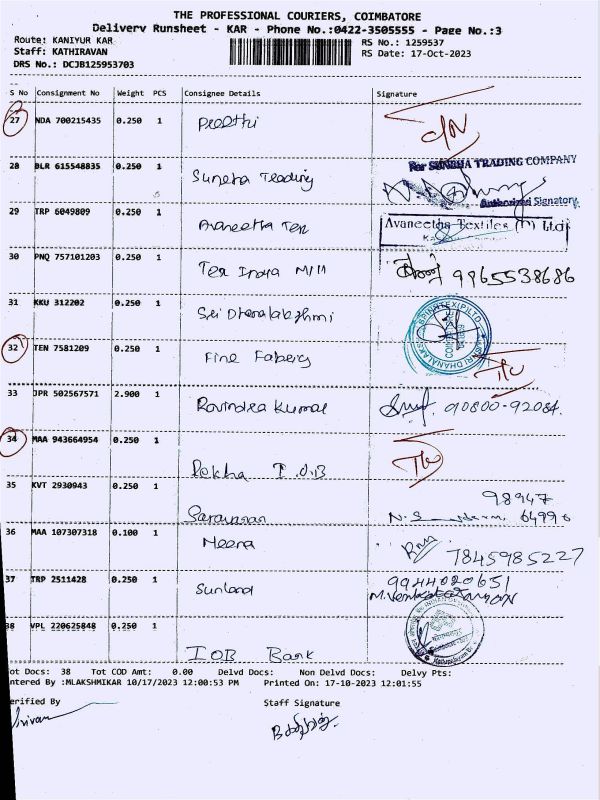 THE PROFESSIONAL COURIERS, COIMBATORE
Delivery Runsheet - KAR - Phone No.:0422-3505555 - Page No.:3
Route: KANIYUR KAR
RS No.: 1259537
Staff: KATHIRAVAN
RS Date: 17-Oct-2023
DRS No.: DCJB125953703
S No Consignment No Weight PCS Consignee Details Signature
27 NDA 700215435 0.250 1 Preethi
28 BLR 615548835 0.250 1 Suneha Trading
For SUNEHA TRADING COMPANY
Authorized Signatory
29 TRP 6049809 0.250 1 Avaneetha Tex
Avaneetha Textiles (P) Ltd
30 PNQ 757101203 0.250 1 Tex India Mill 9965538686
31 KKU 312202 0.250 1 Sri Dhanalakshmi
32 TEN 7581209 0.250 1 Fine Faberg
33 JPR 502567571 2.900 1 Ravindra Kumar 90800-92084.
34 MAA 943664954 0.250 1 Rekha I.O.B
35 KVT 2930943 0.250 1 Saravanan
98947
64996
36 MAA 107307318 0.100 1 Meena 7845985227
37 TRP 2511428 0.250 1 Sunland
9944020651
38 VPL 220625848 0.250 1 IOB Bank
ot Docs: 38 Tot COD Amt: 0.00 Delvd Docs: Non Delvd Docs: Delvy Pts:
ntered By :MLAKSHMIKAR 10/17/2023 12:00:53 PM Printed On: 17-10-2023 12:01:55
erified By Staff Signature